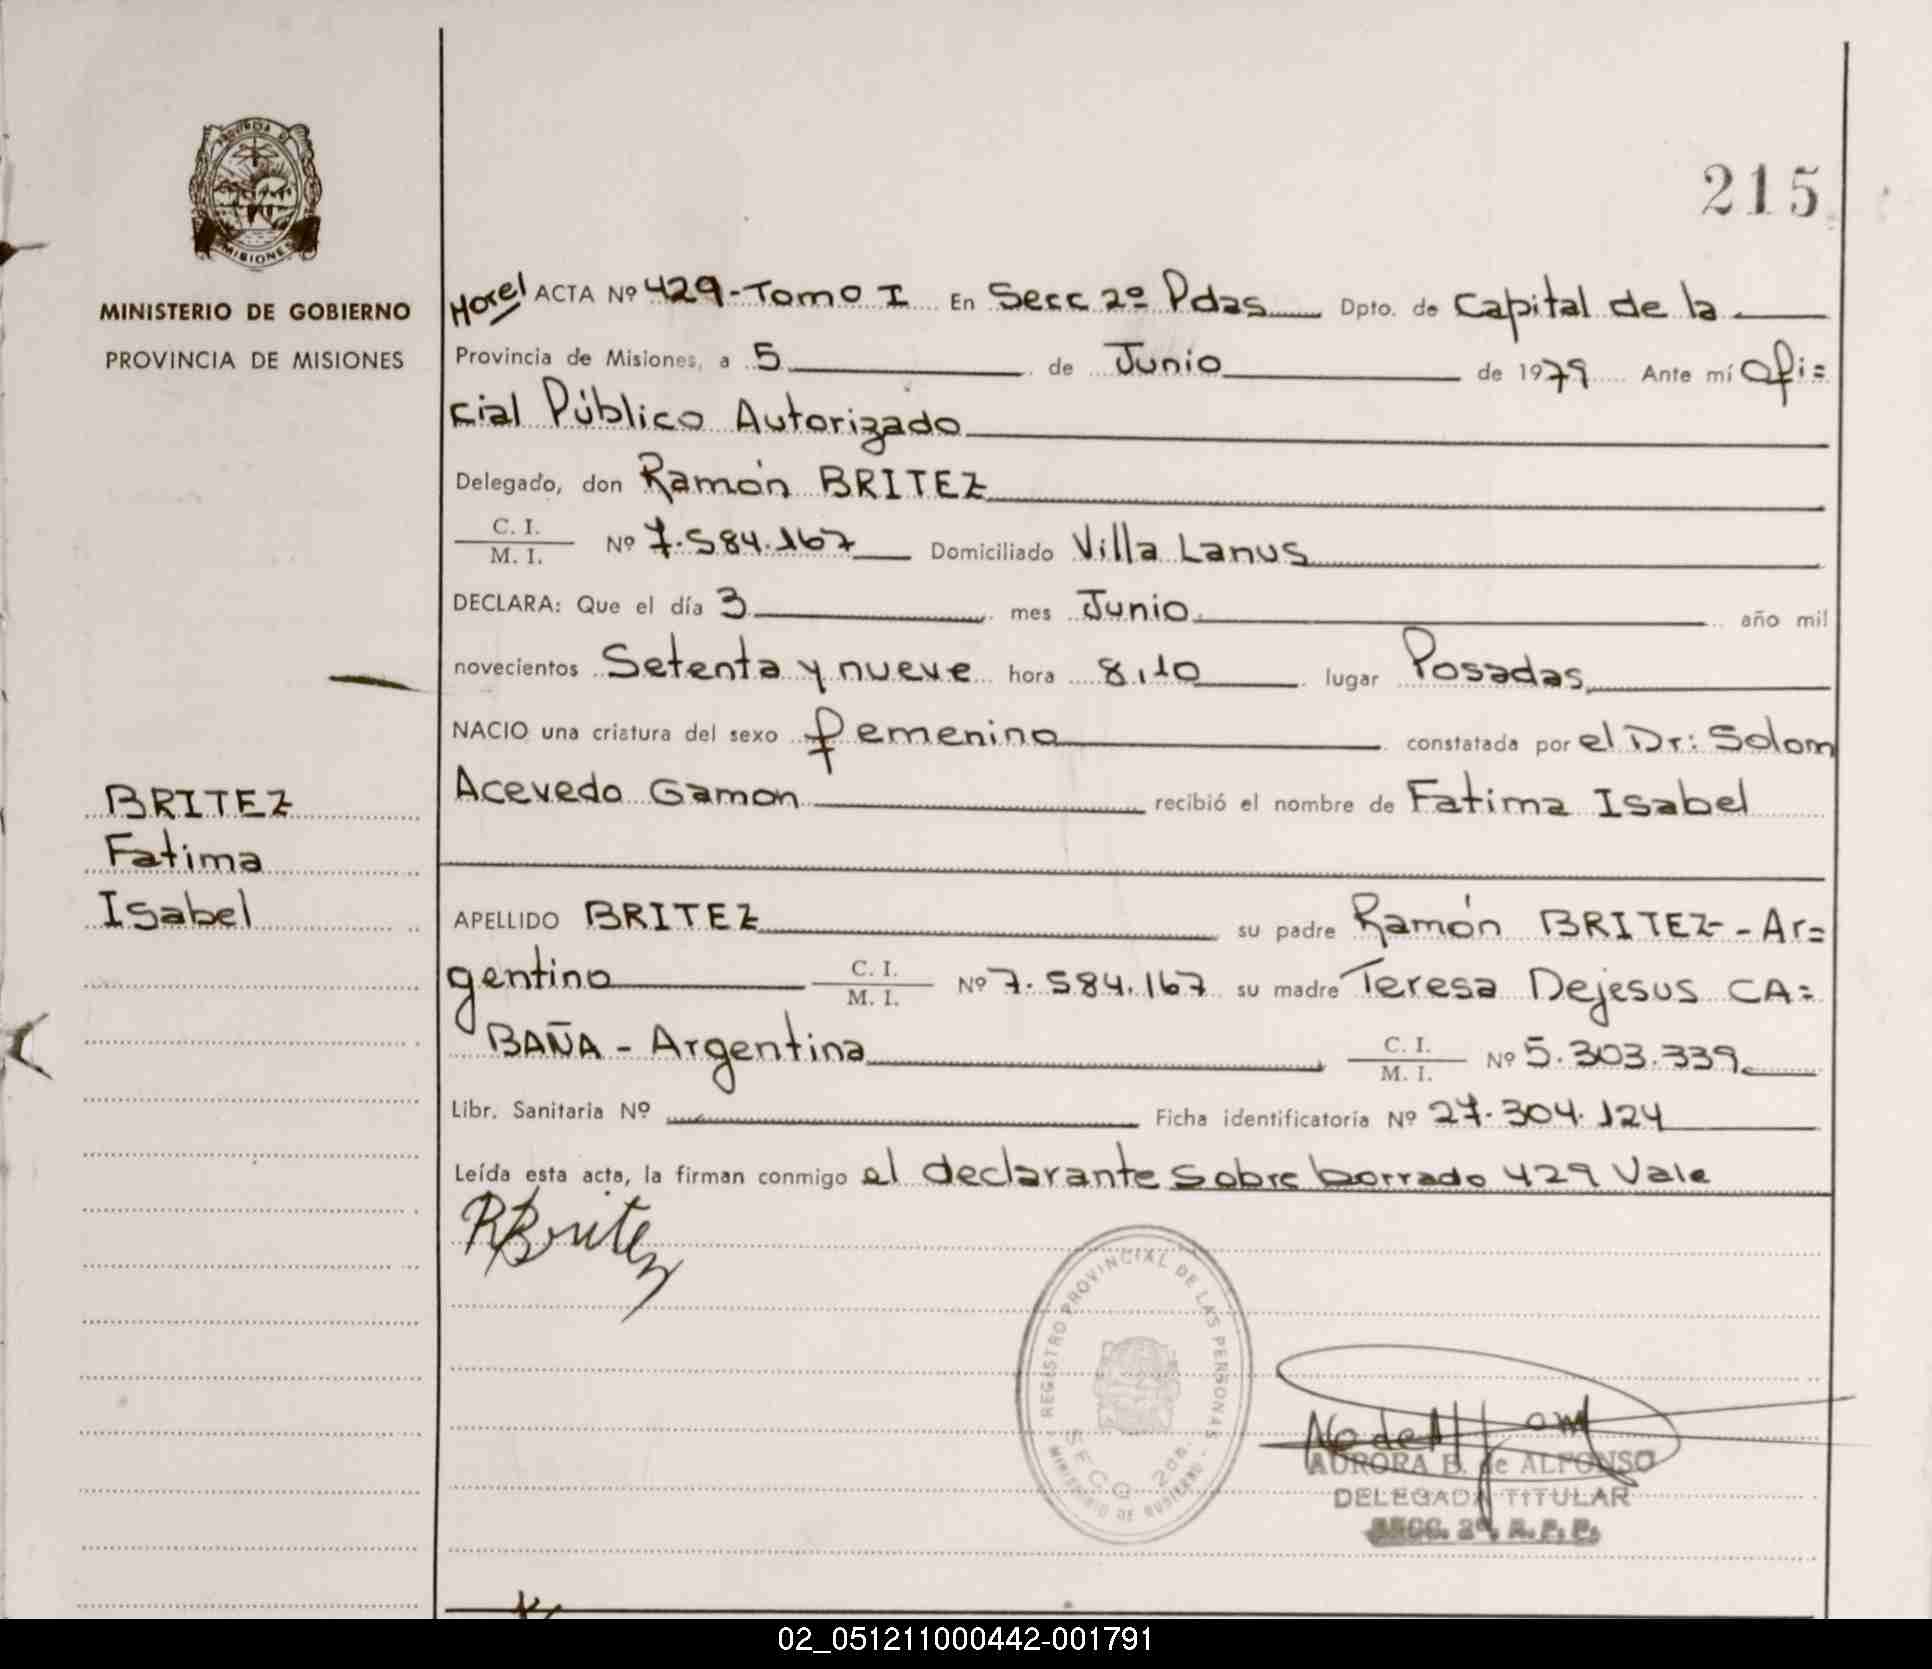 PROVINCIA DE
MISIONES
MINISTERIO DE GOBIERNO
PROVINCIA DE MISIONES
BRITEZ
Fatima
Isabel
215
ACTA Nº 429-Tomo I En Secc 2º Pdas Dpto. de Capital de la
Provincia de Misiones, a 5 de Junio de 1979 Ante mí Ofi=
cial Público Autorizado
Delegado, don Ramón BRITEZ
C. I.
M. I. Nº 7.584.167 Domiciliado Villa Lanus
DECLARA: Que el día 3 mes Junio año mil
novecientos Setenta y nueve hora 8,10 lugar Posadas
NACIO una criatura del sexo femenino constatada por el Dr: Solom
Acevedo Gamon recibió el nombre de Fatima Isabel
APELLIDO BRITEZ su padre Ramón BRITEZ - Ar=
gentino C. I.
M. I. Nº 7.584.167 su madre Teresa Dejesus CA=
BAÑA - Argentina C. I.
M. I. Nº 5.303.339
Libr. Sanitaria Nº Ficha identificatoria Nº 27.304.124
Leída esta acta, la firman conmigo el declarante Sobre borrado 429 Vale
RBritez
REGISTRO PROVINCIAL DE LAS PERSONAS
SECC. 2da.
MINISTERIO DE GOBIERNO
AURORA B. de ALFONSO
DELEGADA TITULAR
SECC. 2ª. R. P. P.
02_051211000442-001791